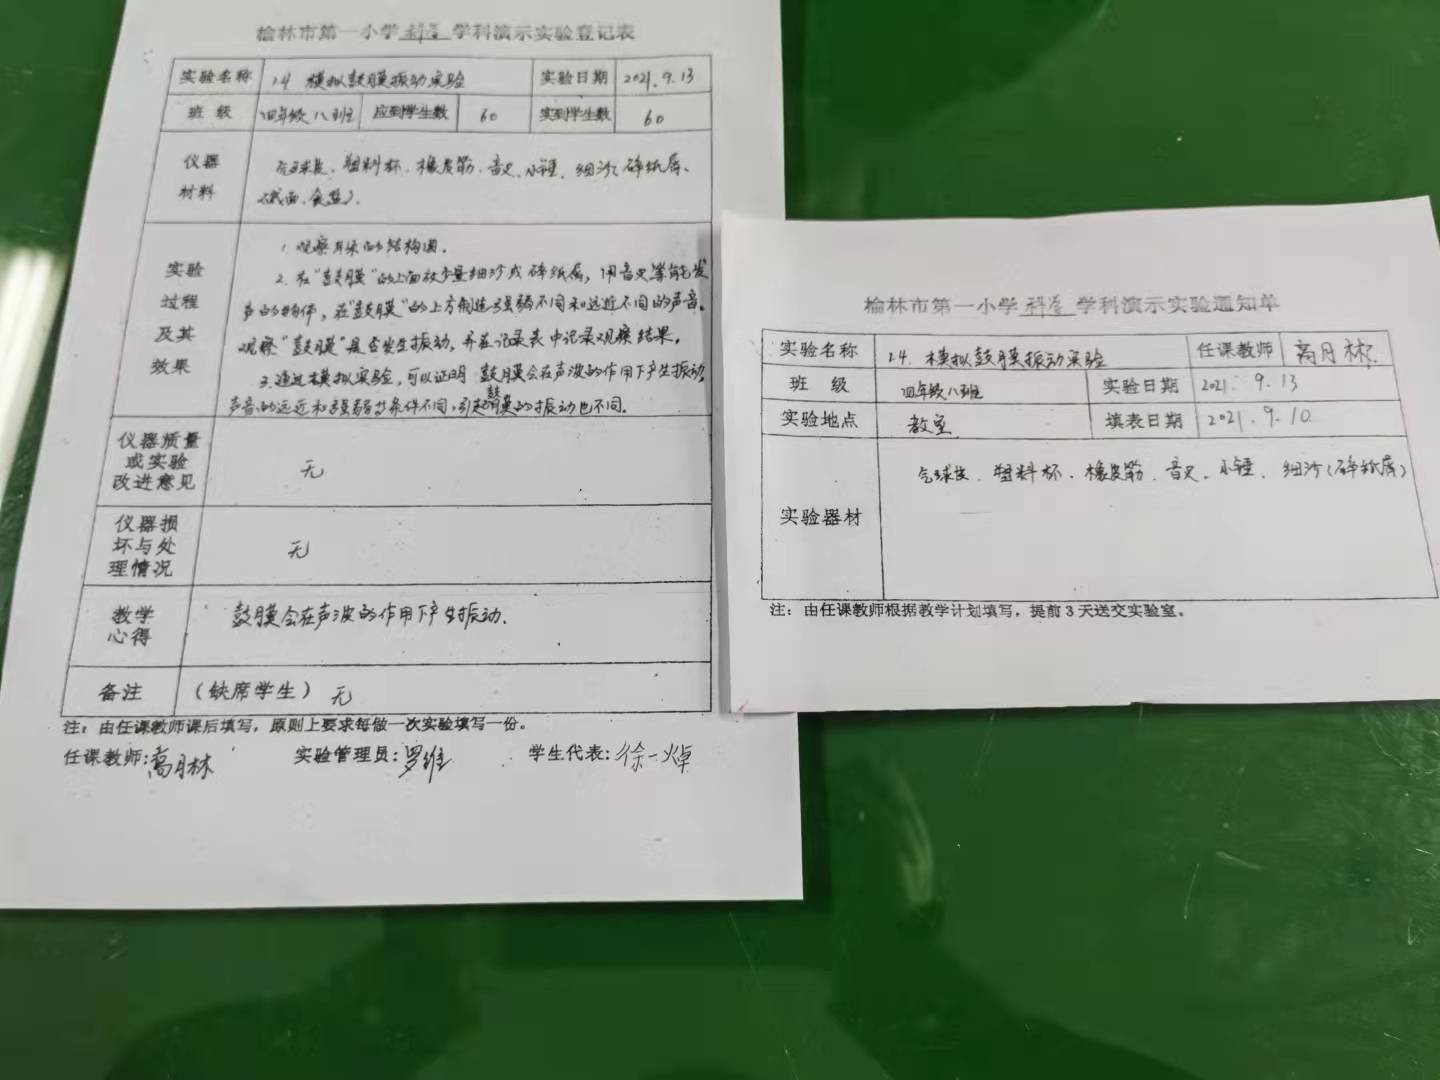 榆林市第一小学科学学科演示实验登记表
实验名称 1.4 模拟鼓膜振动实验 实验日期 2021.9.13
班 级 四年级八班 应到学生数 60 实到学生数 60
仪器
材料
气球皮、塑料杯、橡皮筋、音叉、小锤、细沙(碎纸屑、
面、食盐)。
实验
过程
及其
效果
1.观察耳朵的结构图。
2.在"鼓膜"的上面放少量细沙或碎纸屑,用音叉等能发
声的物体,在"鼓膜"的上方制造强弱不同和远近不同的声音。
观察"鼓膜"是否发生振动,并在记录表中记录观察结果。
3.通过模拟实验,可以证明鼓膜会在声波的作用下产生振动,
声音的远近和强弱等条件不同,引起鼓膜的振动也不同。
仪器质量
或实验
改进意见
无
仪器损
坏与处
理情况
无
教学
心得
鼓膜会在声波的作用下产生振动.
备注 (缺席学生) 无
注:由任课教师课后填写,原则上要求每做一次实验填写一份。
任课教师:高月林 实验管理员:罗维 学生代表:徐一焯
榆林市第一小学科学学科演示实验通知单
实验名称 1.4.模拟鼓膜振动实验 任课教师 高月林
班 级 四年级八班 实验日期 2021.9.13
实验地点 教室 填表日期 2021.9.10
实验器材
气球皮、塑料杯、橡皮筋、音叉、小锤、细沙(碎纸屑)
注:由任课教师根据教学计划填写,提前3天送交实验室。